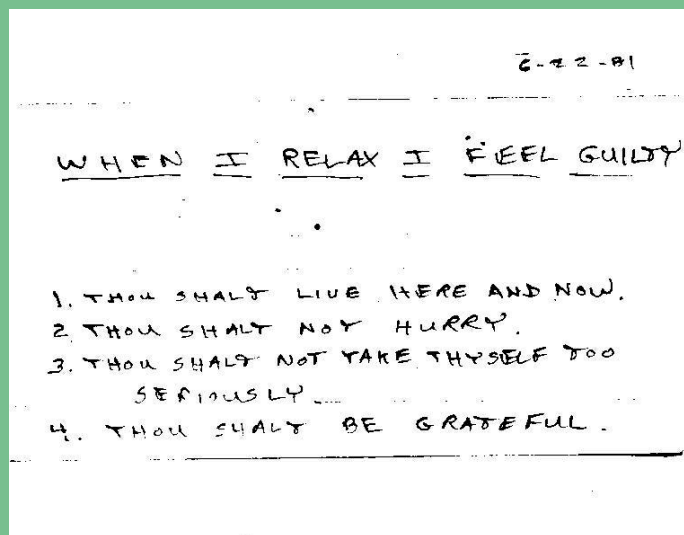 6-22-81
WHEN I RELAX I FEEL GUILTY
1. THOU SHALT LIVE HERE AND NOW.
2 THOU SHALT NOT HURRY.
3. THOU SHALT NOT TAKE THYSELF TOO
SERIOUSLY.
4. THOU SHALT BE GRATEFUL.